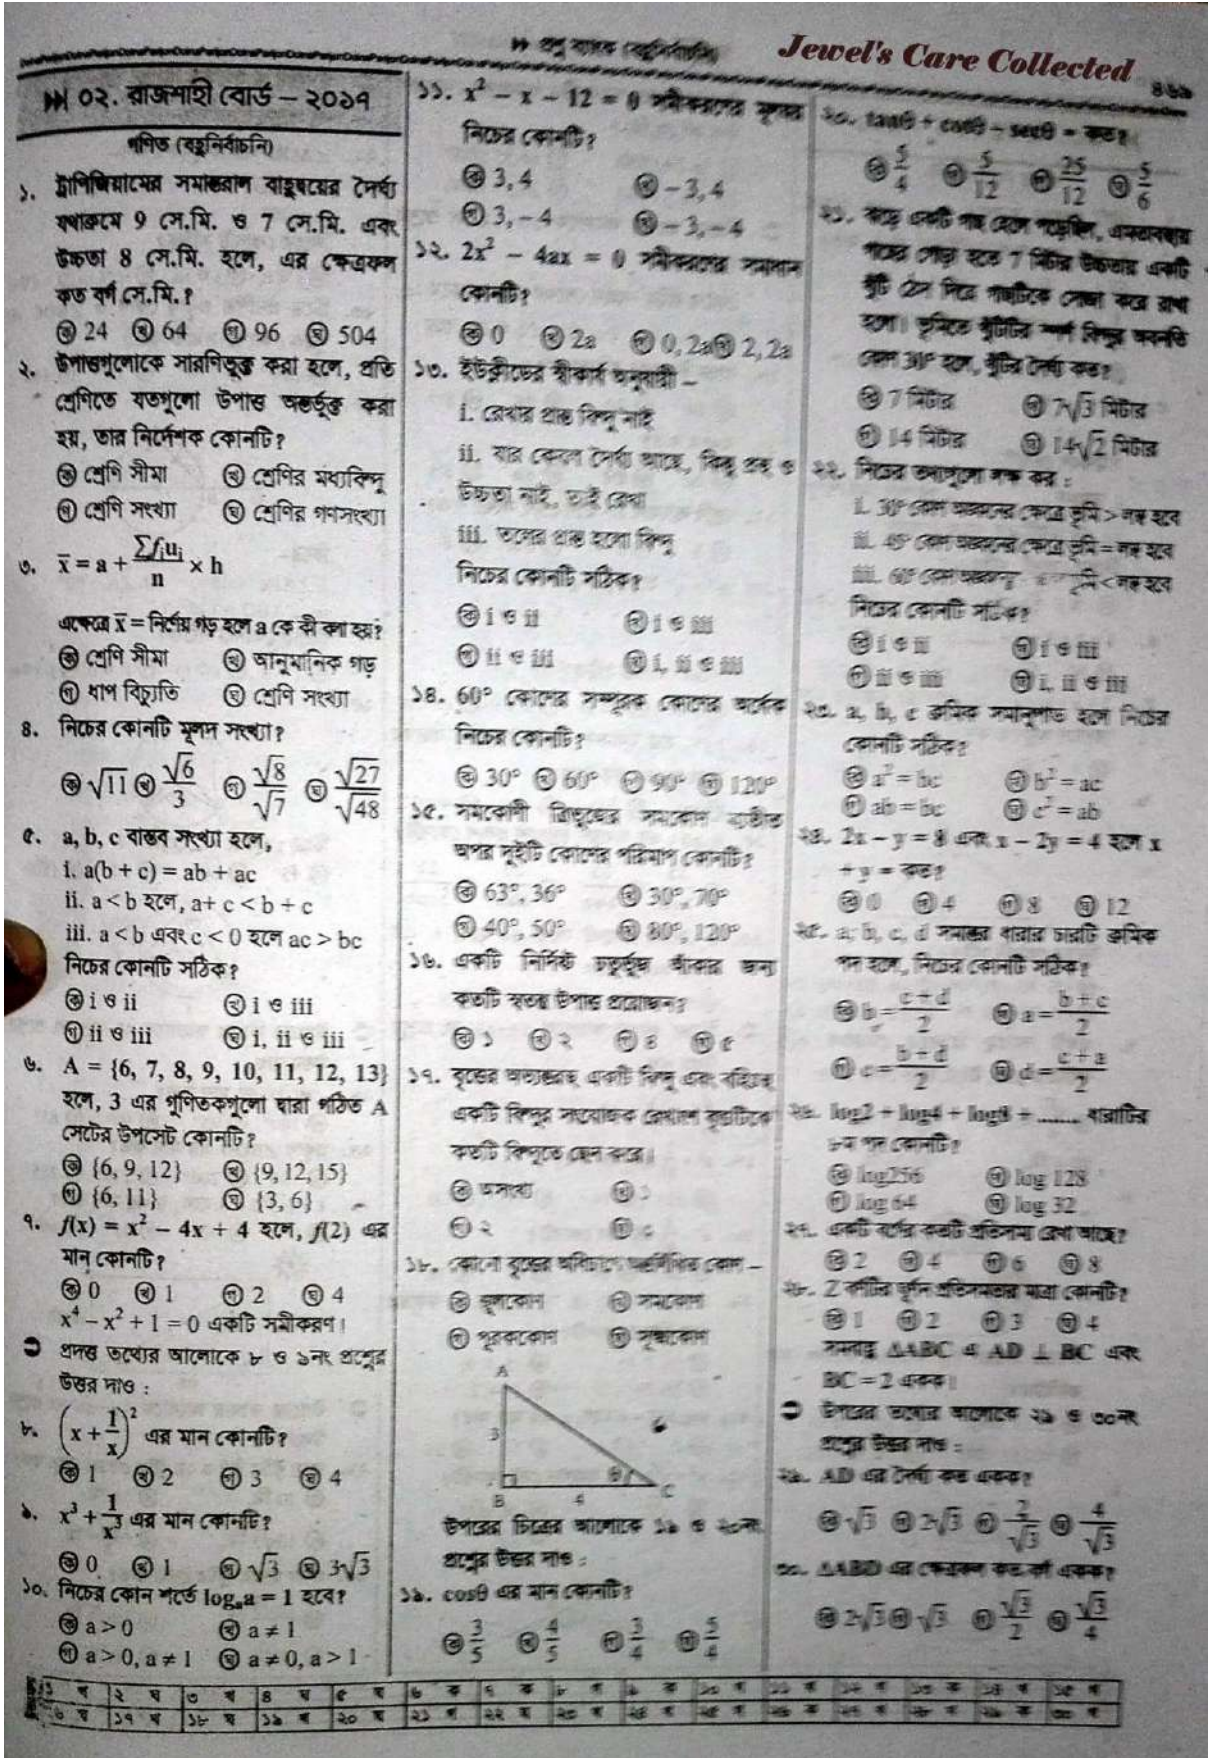 Jewel's Care Collected
০২. রাজশাহী বোর্ড – ২০১৭
গণিত (বহুনির্বাচনি)
১. ট্রাপিজিয়ামের সমান্তরাল বাহুদ্বয়ের দৈর্ঘ্য
যথাক্রমে 9 সে.মি. ও 7 সে.মি. এবং
উচ্চতা 8 সে.মি. হলে, এর ক্ষেত্রফল
কত বর্গ সে.মি.?
ক 24 খ 64 গ 96 ঘ 504
২. উপাত্তগুলোকে সারণিভুক্ত করা হলে, প্রতি
শ্রেণিতে যতগুলো উপাত্ত অন্তর্ভুক্ত করা
হয়, তার নির্দেশক কোনটি?
ক শ্রেণি সীমা খ শ্রেণির মধ্যবিন্দু
গ শ্রেণি সংখ্যা ঘ শ্রেণির গণসংখ্যা
৩. x̅ = a + ∑fᵢuᵢ/n × h
এক্ষেত্রে x̅ = নির্ণেয় গড় হলে a কে কী বলা হয়?
ক শ্রেণি সীমা খ আনুমানিক গড়
গ ধাপ বিচ্যুতি ঘ শ্রেণি সংখ্যা
৪. নিচের কোনটি মূলদ সংখ্যা?
ক √11 খ √6/3 গ √8/√7 ঘ √27/√48
৫. a, b, c বাস্তব সংখ্যা হলে,
i. a(b + c) = ab + ac
ii. a < b হলে, a + c < b + c
iii. a < b এবং c < 0 হলে ac > bc
নিচের কোনটি সঠিক?
ক i ও ii খ i ও iii
গ ii ও iii ঘ i, ii ও iii
৬. A = {6, 7, 8, 9, 10, 11, 12, 13}
হলে, 3 এর গুণিতকগুলো দ্বারা গঠিত A
সেটের উপসেট কোনটি?
ক {6, 9, 12} খ {9, 12, 15}
গ {6, 11} ঘ {3, 6}
৭. f(x) = x² – 4x + 4 হলে, f(2) এর
মান কোনটি?
ক 0 খ 1 গ 2 ঘ 4
x⁴ – x² + 1 = 0 একটি সমীকরণ।
প্রদত্ত তথ্যের আলোকে ৮ ও ৯নং প্রশ্নের
উত্তর দাও :
৮. (x + 1/x)² এর মান কোনটি?
ক 1 খ 2 গ 3 ঘ 4
৯. x³ + 1/x³ এর মান কোনটি?
ক 0 খ 1 গ √3 ঘ 3√3
১০. নিচের কোন শর্তে logₐa = 1 হবে?
ক a > 0 খ a ≠ 1
গ a > 0, a ≠ 1 ঘ a ≠ 0, a > 1
১১. x² – x – 12 = 0 সমীকরণের মূলদ্বয়
নিচের কোনটি?
ক 3, 4 খ – 3, 4
গ 3, – 4 ঘ – 3, – 4
১২. 2x² – 4ax = 0 সমীকরণের সমাধান
কোনটি?
ক 0 খ 2a গ 0, 2a ঘ 2, 2a
১৩. ইউক্লীডের স্বীকার্য অনুযায়ী –
i. রেখার প্রান্ত বিন্দু নাই
ii. যার কেবল দৈর্ঘ্য আছে, কিন্তু প্রস্থ ও
উচ্চতা নাই, তাই রেখা
iii. তলের প্রান্ত হলো বিন্দু
নিচের কোনটি সঠিক?
ক i ও ii খ i ও iii
গ ii ও iii ঘ i, ii ও iii
১৪. 60° কোণের সম্পূরক কোণের অর্ধেক
নিচের কোনটি?
ক 30° খ 60° গ 90° ঘ 120°
১৫. সমকোণী ত্রিভুজের সমকোণ ব্যতীত
অপর দুইটি কোণের পরিমাণ কোনটি?
ক 63°, 36° খ 30°, 70°
গ 40°, 50° ঘ 80°, 120°
১৬. একটি নির্দিষ্ট চতুর্ভুজ আঁকার জন্য
কতটি স্বতন্ত্র উপাত্ত প্রয়োজন?
ক ১ খ ২ গ ৪ ঘ ৫
১৭. বৃত্তের অভ্যন্তরস্থ একটি বিন্দু এবং বহিঃস্থ
একটি বিন্দুর সংযোজক রেখাংশ বৃত্তটিকে
কতটি বিন্দুতে ছেদ করে।
ক অসংখ্য খ ১
গ ২ ঘ ৩
১৮. কোনো বৃত্তের অধিচাপে অন্তর্লিখিত কোণ –
ক স্থূলকোণ খ সমকোণ
গ পূরককোণ ঘ সূক্ষ্মকোণ
A
3
B 4 θ C
উপরের চিত্রের আলোকে ১৯ ও ২০নং
প্রশ্নের উত্তর দাও :
১৯. cosθ এর মান কোনটি?
ক 3/5 খ 4/5 গ 3/4 ঘ 5/4
২০. tanθ + cotθ – secθ = কত?
ক 5/4 খ 5/12 গ 25/12 ঘ 5/6
২১. ঝড়ে একটি গাছ হেলে পড়েছিল, এমতাবস্থায়
গাছের গোড়া হতে 7 মিটার উচ্চতায় একটি
খুঁটি ঠেস দিয়ে গাছটিকে সোজা করে রাখা
হলো। ভূমিতে খুঁটিটির স্পর্শ বিন্দুর অবনতি
কোণ 30° হলে, খুঁটির দৈর্ঘ্য কত?
ক 7 মিটার খ 7√3 মিটার
গ 14 মিটার ঘ 14√2 মিটার
২২. নিচের তথ্যগুলো লক্ষ কর :
i. 30° কোণ অঙ্কনের ক্ষেত্রে ভূমি > লম্ব হবে
ii. 45° কোণ অঙ্কনের ক্ষেত্রে ভূমি = লম্ব হবে
iii. 60° কোণ ভূমি < লম্ব হবে
নিচের কোনটি সঠিক?
ক i ও ii খ i ও iii
গ ii ও iii ঘ i, ii ও iii
২৩. a, b, c ক্রমিক সমানুপাত হলে নিচের
কোনটি সঠিক?
ক a² = bc খ b² = ac
গ ab = bc ঘ c² = ab
২৪. 2x – y = 8 এবং x – 2y = 4 হলে x
+ y = কত?
ক 0 খ 4 গ 8 ঘ 12
২৫. a, b, c, d সমান্তর ধারার চারটি ক্রমিক
পদ হলে, নিচের কোনটি সঠিক?
ক b = c + d/2 খ a = b + c/2
গ c = b + d/2 ঘ d = c + a/2
২৬. log2 + log4 + log8 + ....... ধারাটির
৮ম পদ কোনটি?
ক log256 খ log 128
গ log 64 ঘ log 32
২৭. একটি বর্গের কতটি প্রতিসাম্য রেখা আছে?
ক 2 খ 4 গ 6 ঘ 8
২৮. Z বর্ণটির ঘূর্ণন প্রতিসমতার মাত্রা কোনটি?
ক 1 খ 2 গ 3 ঘ 4
সমবাহু ΔABC এ AD ⊥ BC এবং
BC = 2 একক।
উপরের তথ্যের আলোকে ২৯ ও ৩০নং
প্রশ্নের উত্তর দাও :
২৯. AD এর দৈর্ঘ্য কত একক?
ক √3 খ 2√3 গ 2/√3 ঘ 4/√3
৩০. ΔABD এর ক্ষেত্রফল কত বর্গ একক?
ক 2√3 খ √3 গ √3/2 ঘ √3/4